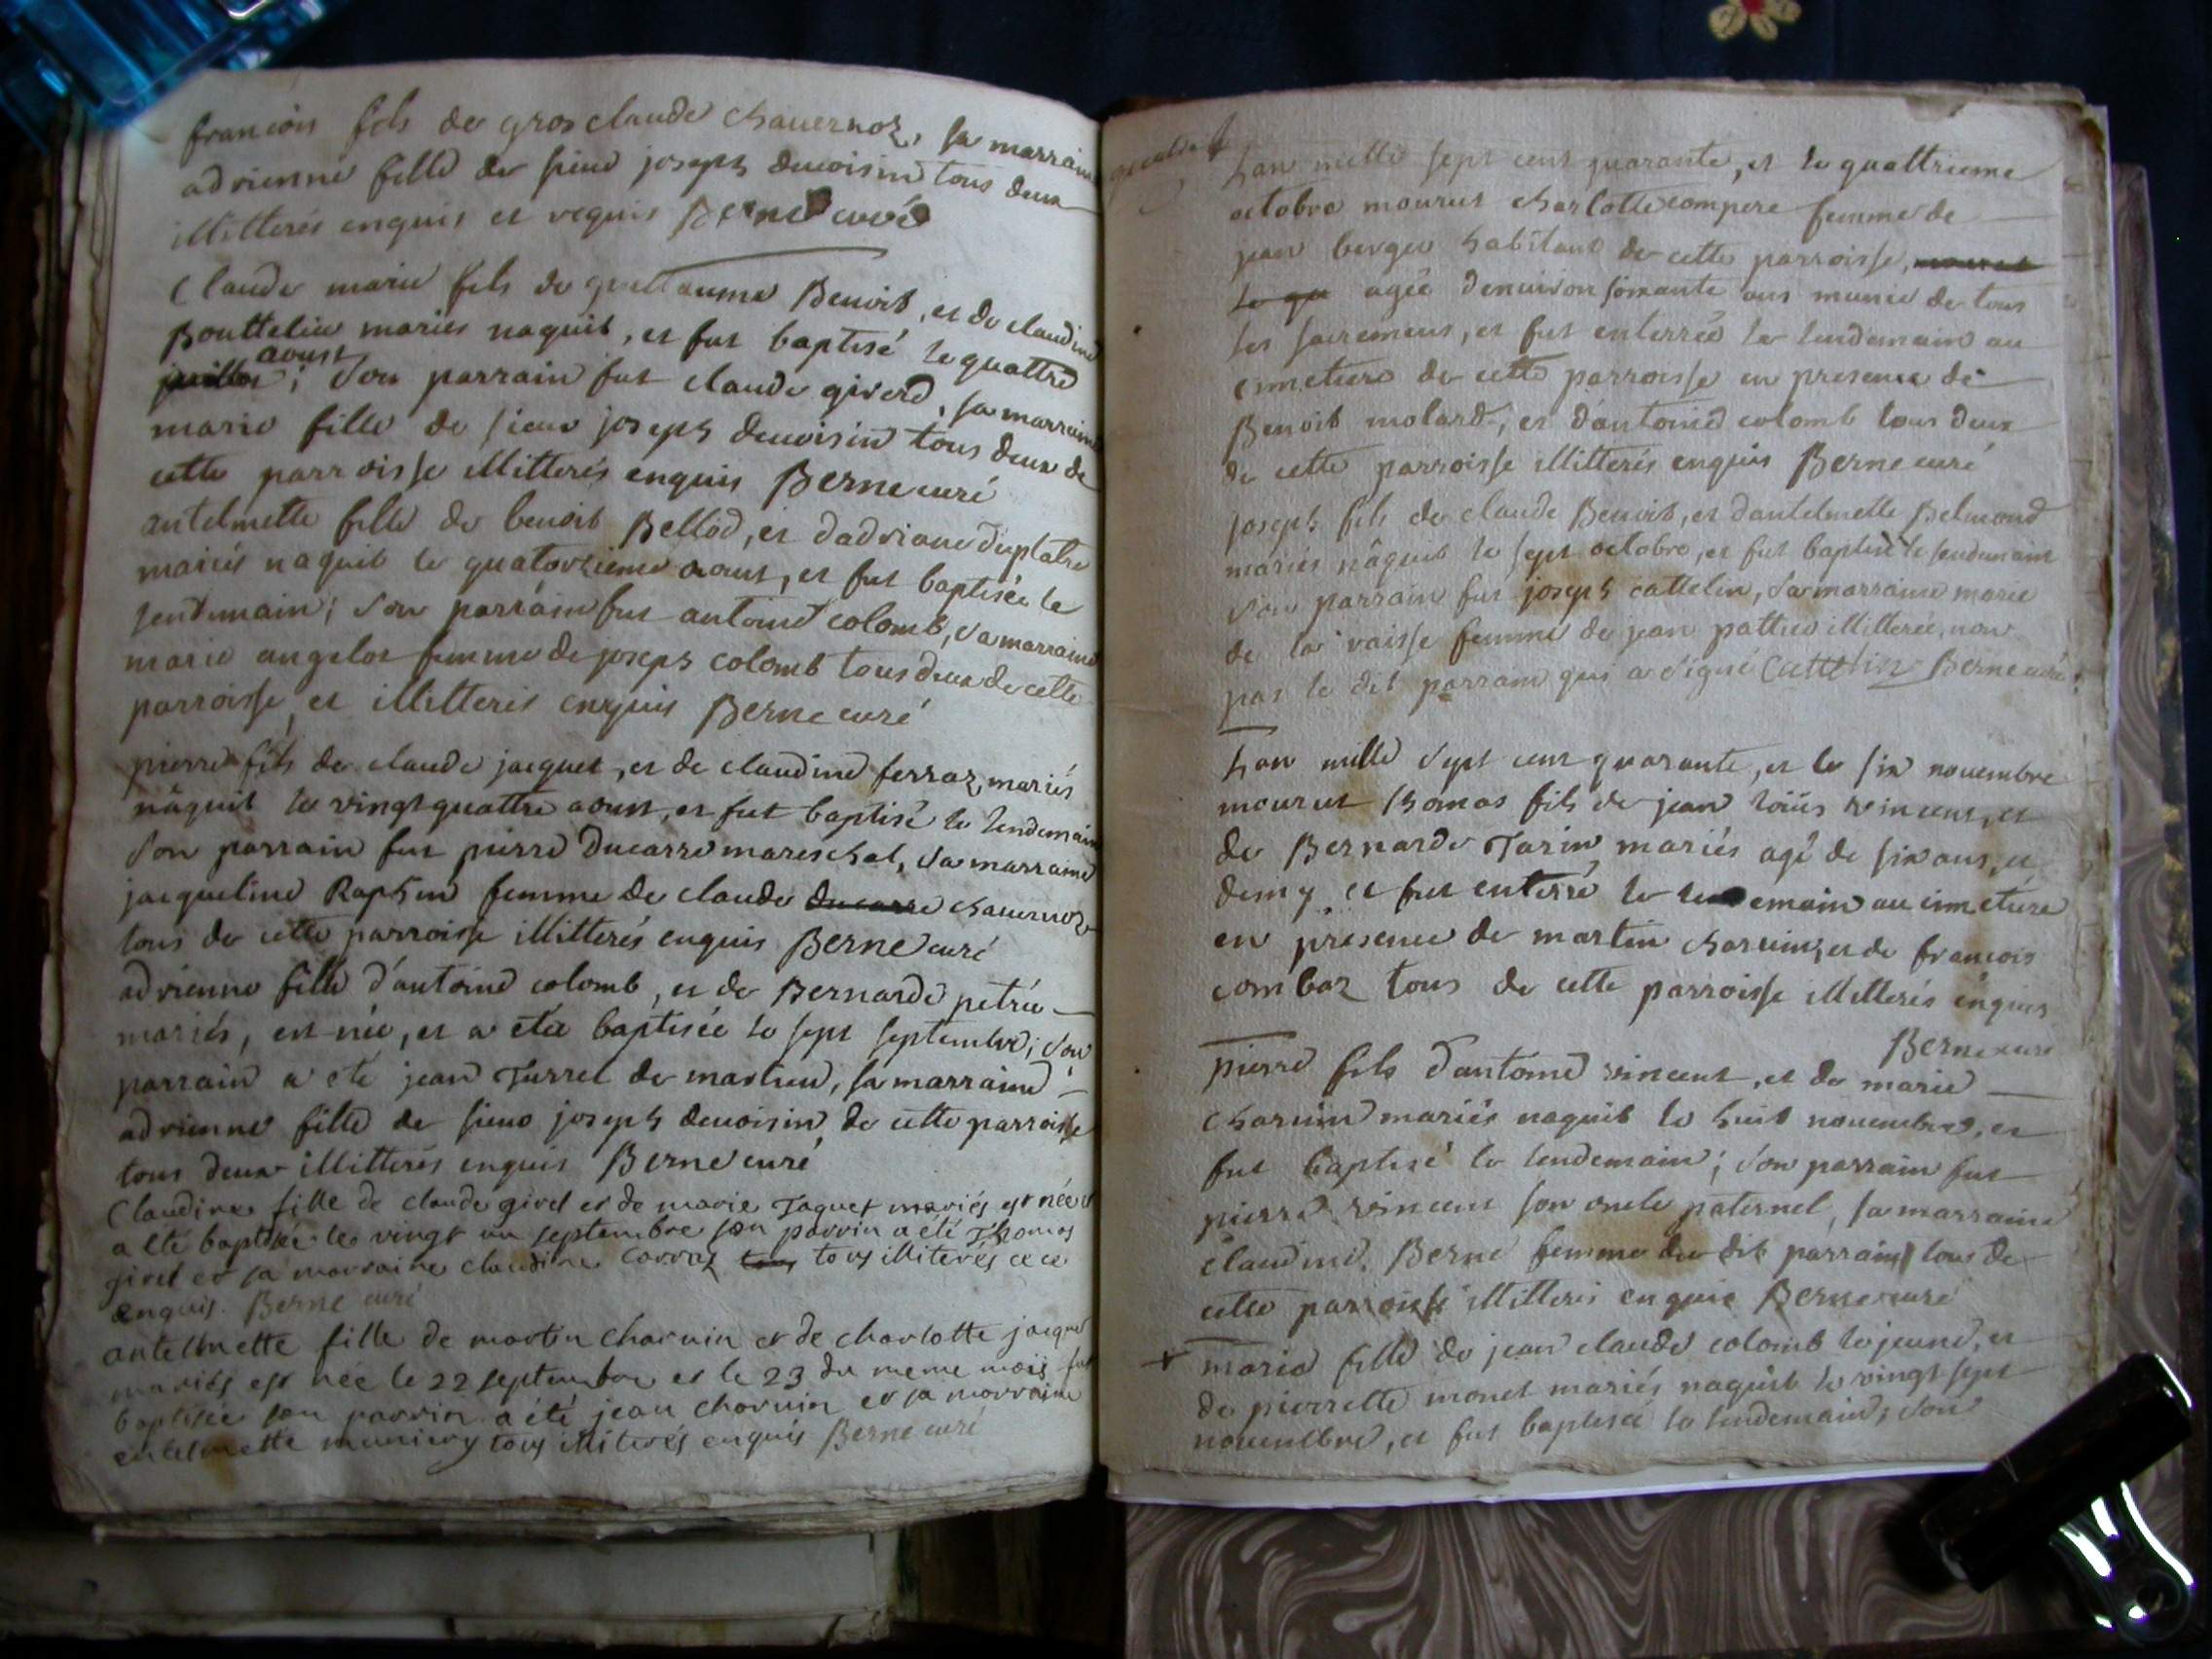 francois fils de gros claude chauernoz, sa marraine
adrienne fille de sieur joseph deuoisin tous deux
illitterés enquis et requis Berne curé
Claude marie fils de guillaume Benoit, et de claudine
Bouttelier mariés naquit, et fut baptisé le quattre
juillet aoust ; son parrain fut claude giverd, sa marraine
marie fille de sieur joseph deuoisin tous deux de
cette parroisse illitterés enquis Berne curé
antelmette fille de benoit Bellod, et dadriane duplatre
mariés naquit le quatorzieme aoust, et fut baptisée le
lendemain ; son parrain fut antoine colomb, sa marraine
marie angelot femme de joseph colomb tous deux de cette
parroisse, et illitterés enquis Berne curé
pierre fils de claude jacquet, et de claudine ferraz, mariés
nâquit le vingt quattre aoust, et fut baptisé le lendemain
son parrain fut pierre Ducarre mareschal, sa marraine
jacqueline Raphin femme de claude ducarre chauernoz
tous de cette parroisse illitterés enquis Berne curé
adrienne fille d'antoine colomb, et de Bernarde petrie
mariés, est née, et a eté baptisée le sept septembre ; son
parrain a eté jean Turrel de marlieu, sa marraine
adrienne fille de sieur joseph deuoisin, de cette parroisse
tous deux illitterés enquis Berne curé
Claudine fille de claude girel et de marie Jaquet mariés est née et
a eté baptisée le vingt un septembre son parrin a été Thomas
girel et sa marraine claudine Carraz tous tous illiterés de ce
enquis. Berne curé
antelmette fille de martin charuin et de charlotte jacque
mariés est née le 22 septembre et le 23 du meme mois fut
baptisée son parrin a été jean charuin et sa marraine
antelmette muniery tous illiterés enquis Berne curé
Lan mille sept cent quarante, et le quattrieme
octobre mourut charlotte compere femme de
jean berger habitant de cette parroisse, mourut
le qu agée denuiron soixante ans munie de tous
ses sacremens, et fut enterrée le lendemain au
cimetiere de cette parroisse en presence de
Benoit molard, et d'antoine colomb tous deux
de cette parroisse illitterés enquis Berne curé
joseph fils de claude Benoit, et dantelmette Belmond
mariés nâquit le sept octobre, et fut baptisé le lendemain
son parrain fut joseph cattelin, sa marraine marie
de la vaisse femme de jean pattieu illitterée, non
pas le dit parrain qui a signé Cattelin Berne curé
Lan mille sept cent quarante, et le six novembre
mourut thomas fils de jean loüis vincent, et
de Bernarde Tarin mariés agé de six ans, et
demy, et fut enterré le lendemain au cimetiere
en presence de martin charuin, et de francois
combaz tous de cette parroisse illitterés enquis
Berne curé
pierre fils d'antoine vincent, et de marie
charuin mariés naquit le huit nouembre, et
fut baptisé le lendemain ; son parrain fut
pierre vincent son oncle paternel, sa marraine
claudine Berne femme du dit parrain tous de
cette parroisse illitterés enquis Berne curé
+ marie fille de jean claude colomb le jeune, et
de pierrette monet mariés naquit le vingt sept
nouembre, et fut baptisée le lendemain ; son